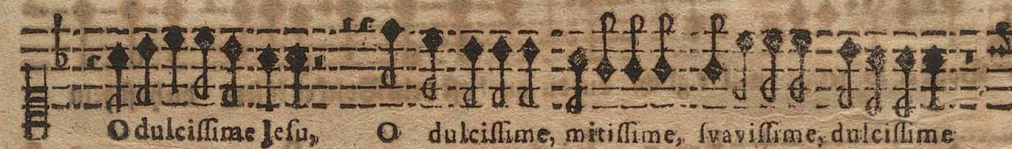 O dulciſſime Jeſu, O dulciſſime, mitiſſime, ſvaviſſime, dulciſſime